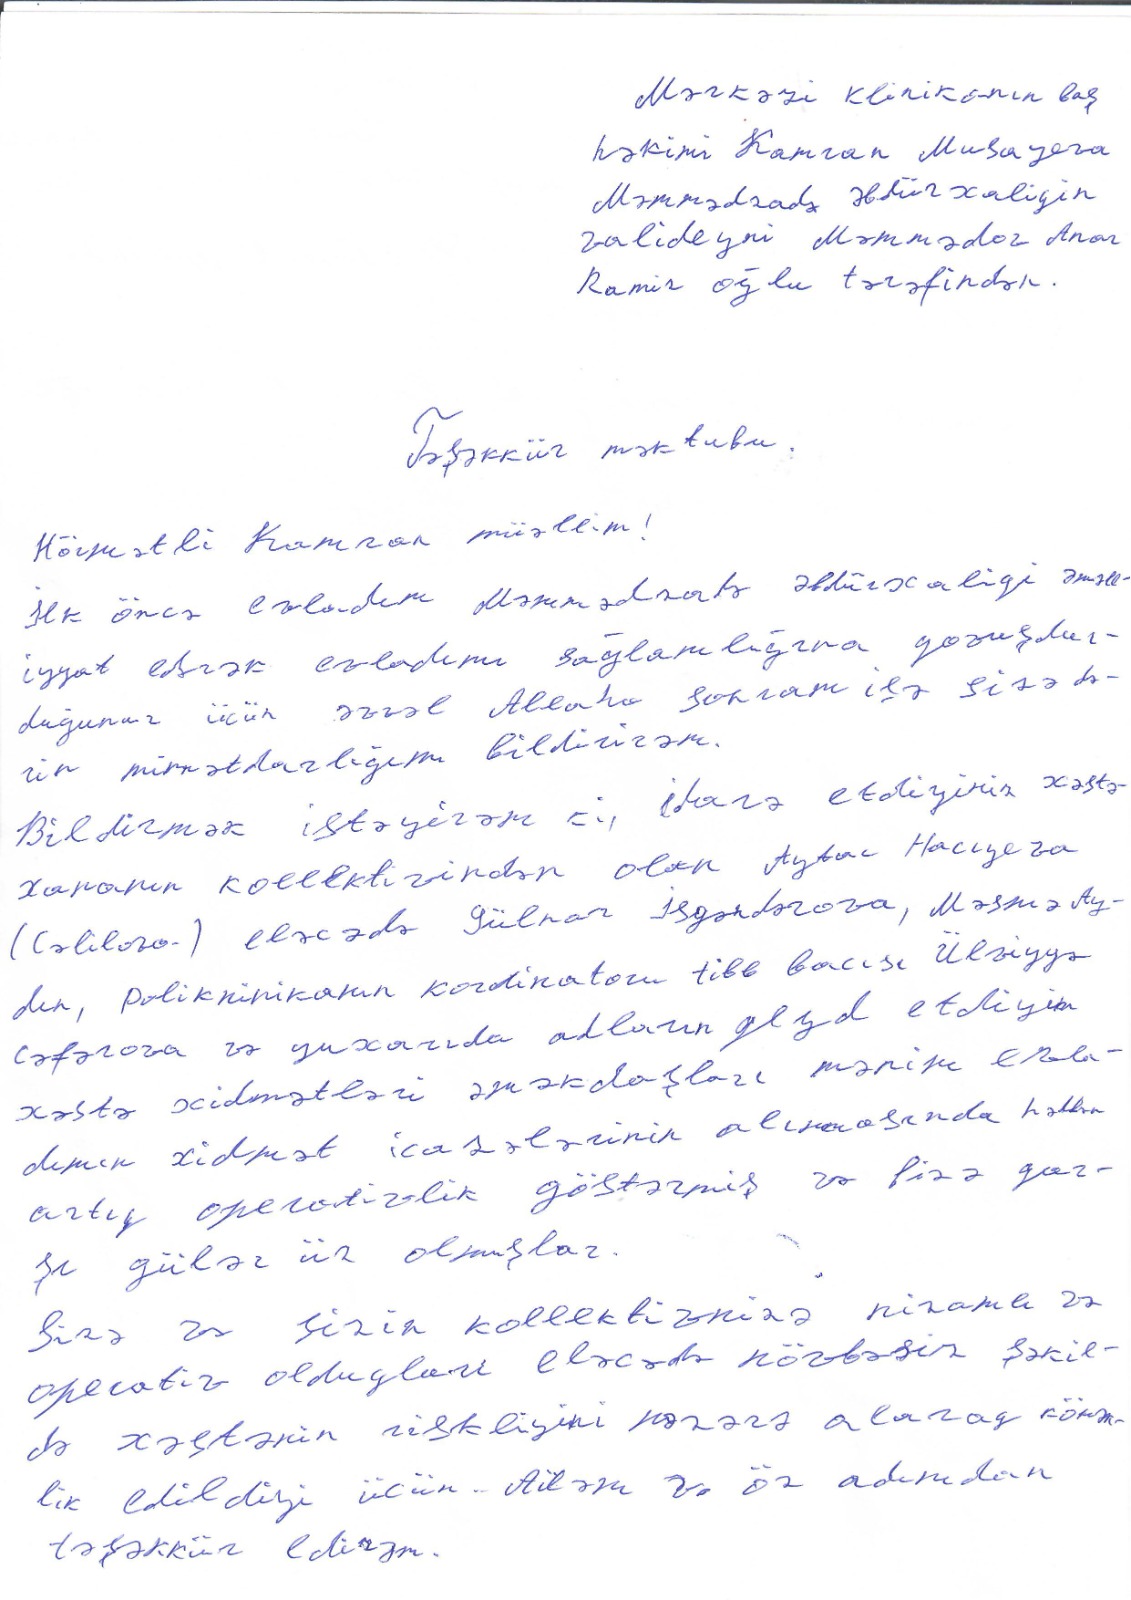 Mərkəzi klinikanın baş
həkimi Kamran Musayevə
Məmmədzadə Əbdürxaligin
valideyni Məmmədov Anar
Ramiz oğlu tərəfindən.
Təşəkkür məktubu.
Hörmətli Kamran müəllim!
İlk öncə evladım Məmmədzadə Əbdürxaligi əməll-
iyyat edərək evladımı sağlamlığına qovuşdur-
duğunuz üçün əvvəl Allaha sonram isə sizə də-
rin minnətdarlığımı bildirirəm.
Bildirmək istəyirəm ki, idarə etdiyiniz xəstə-
xananın kollektivindən olan Aytac Hacıyeva
(Cəlilova) eləcədə Gülnar İsgəndərova, Məsmə Ay-
dın, poliklinikanın kordinatoru tibb bacısı Ülviyyə
Cəfərova və yuxarıda adların qeyd etdiyim
xəstə xidmətləri əməkdaşları mənim evla-
dımın xidmət icazələrinin alınmasında həddən
artıq operativlik göstərmiş və bizə qar-
şı gülər üz olmuşlar.
Sizə və sizin kollektivnizə nizamlı və
operativ olduqları eləcədə növbəsiz şəkil-
də xəstənin riskliyini nəzərə alaraq kömə-
lik edildiyi üçün Ailəm və öz adımdan
təşəkkür edirəm.